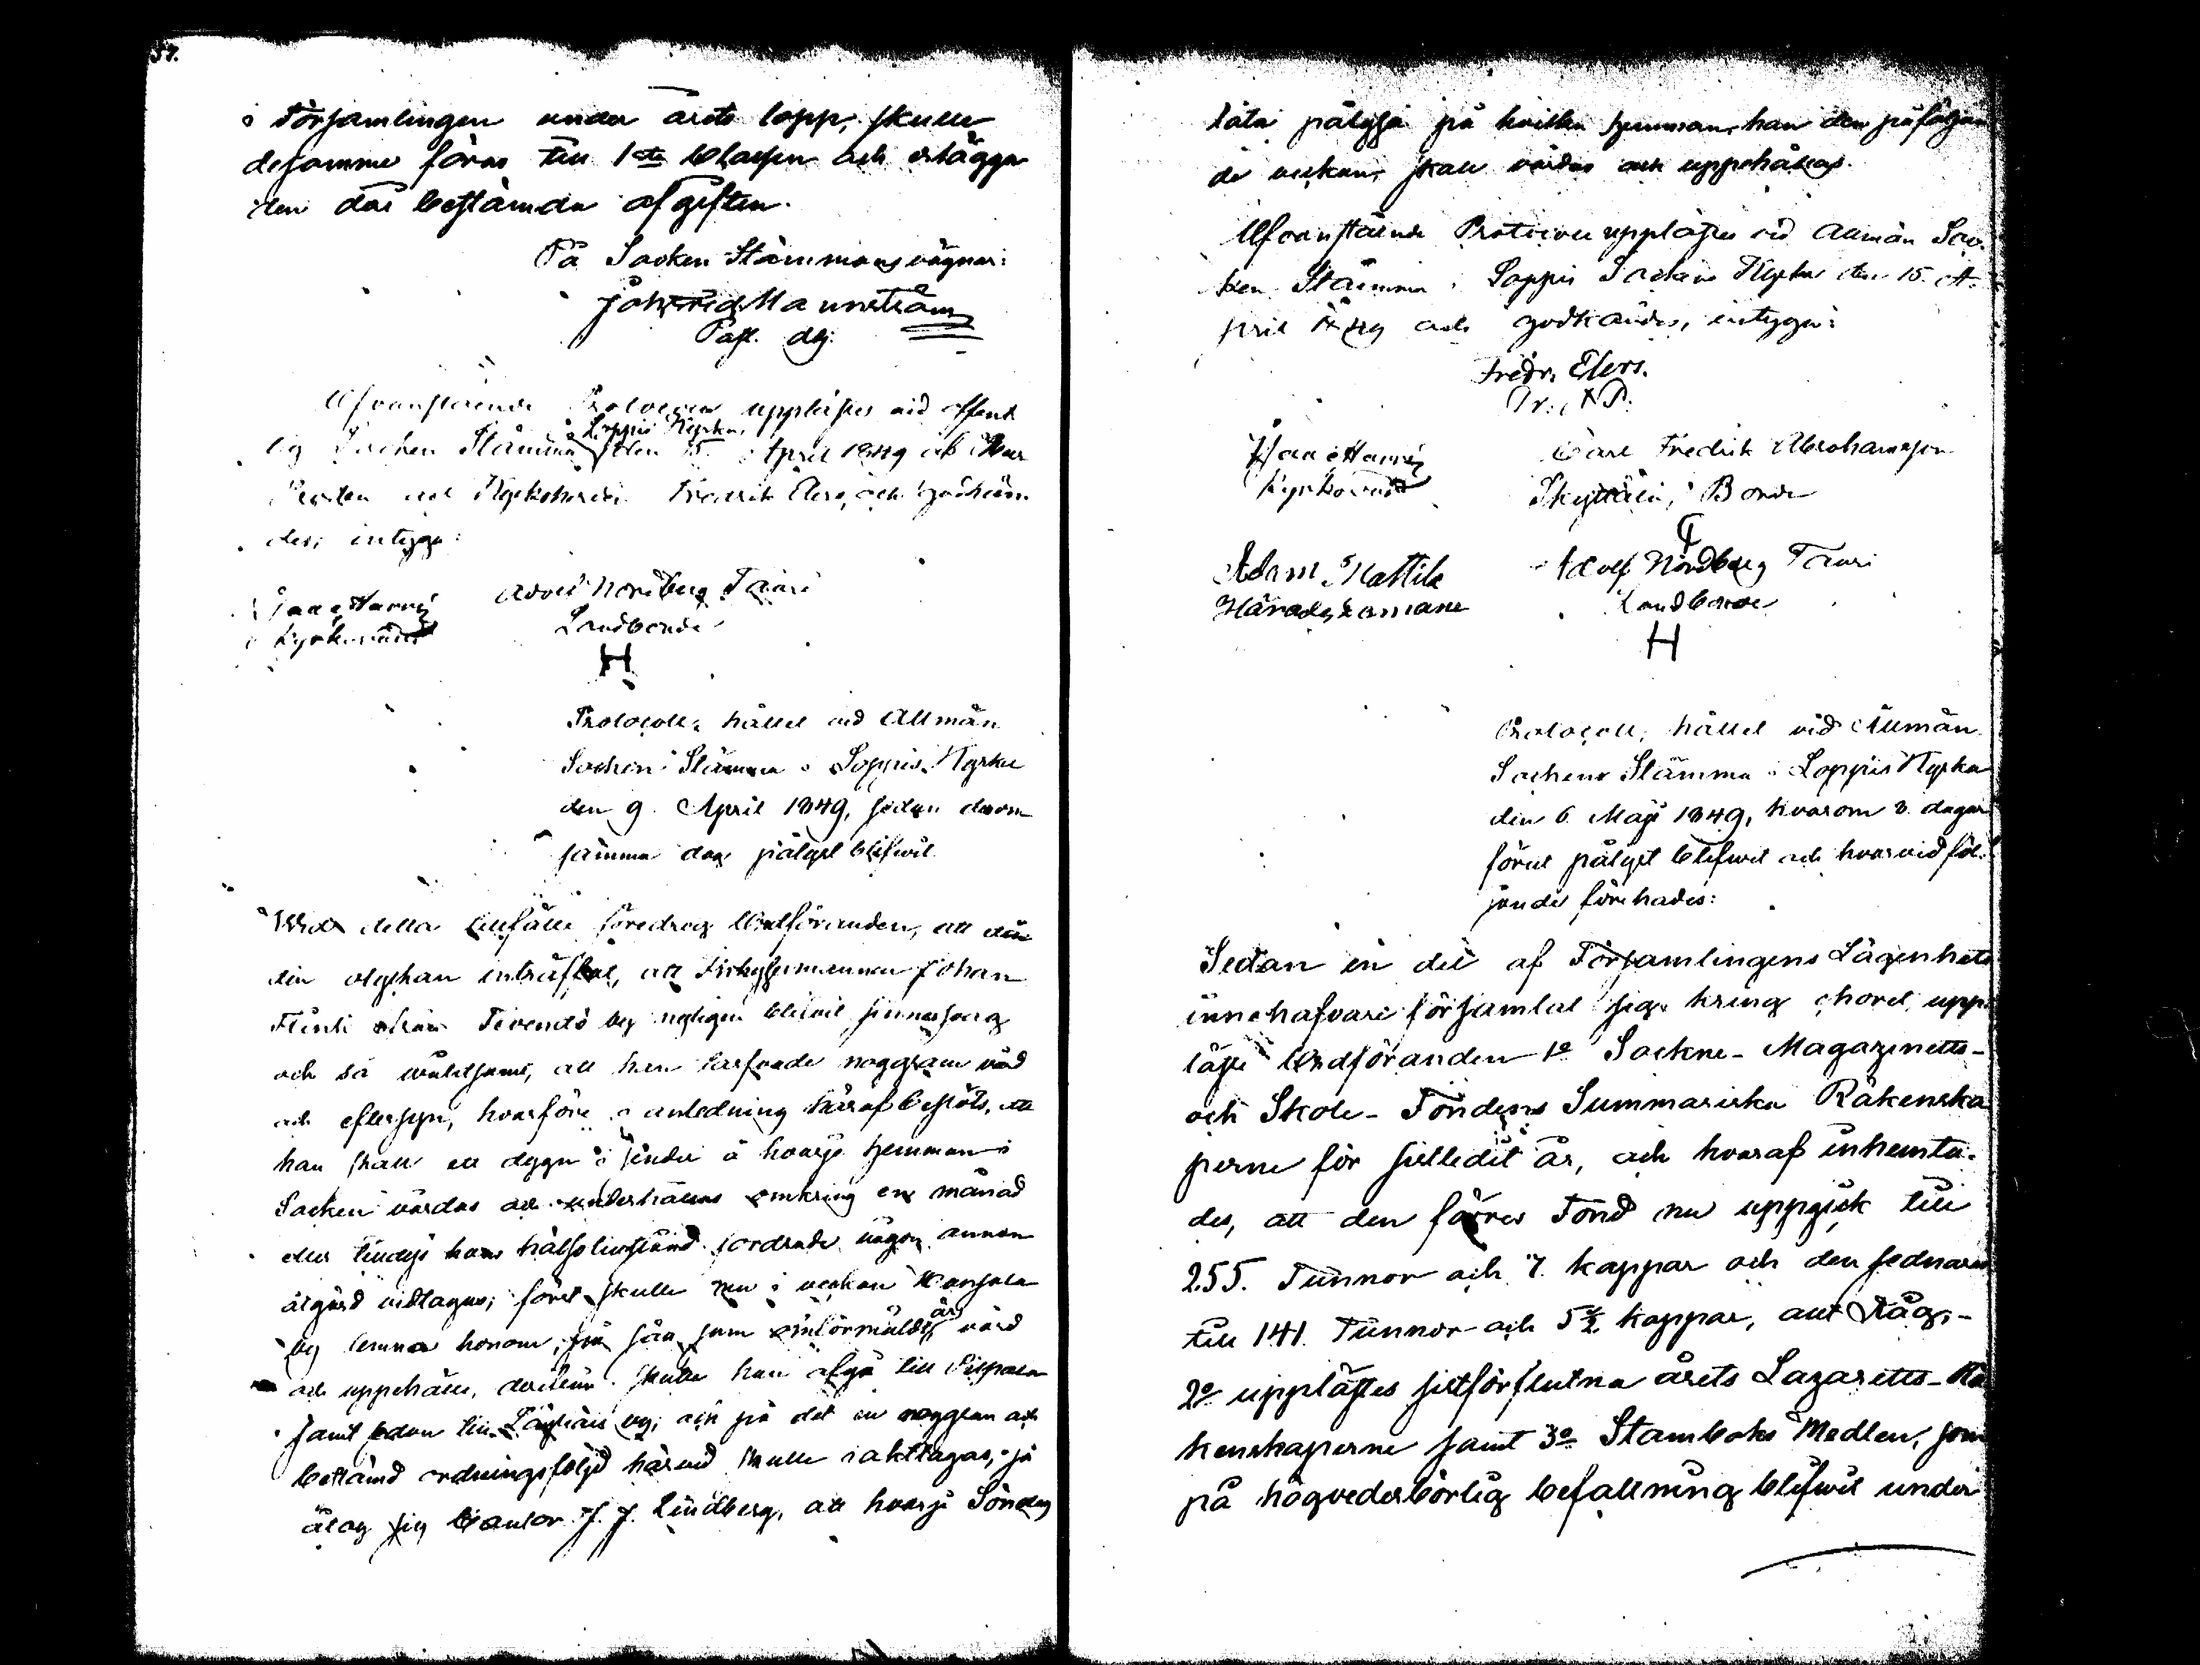 57.
i Församlingen under årets lopp, skulle
desamme föras till 1sta Classen och erlägga
den der bestämda afgiften.
På Socken Stämmans vägnar:
Joh. Fred. Maunström
Past. dej.
Ofvanstående Protocoll upplästes vid offent
lig Socken Stämma i Loppis Kyrka, den 15 April 1849 af Herr
Prosten och Kyrkoherden Fredrik Elers, och godkän
des, intyga:
Isaac Harvij Adolf Nordberg Tauri
Kyrkovärd Landbonde
H
Protocoll, hållet vid Allmän
Socken Stämma i Loppis Kyrka
den 9. April 1849, sedan derom
samma dag pålyst blifvit.
Wid detta tillfälle föredrog Ordföranden, att den
den olyckan inträffat, att Inhysesmannen Johan
Flinti från Tevends by nyligen blifvit sinnessvag
och så våldsam, att han tarfvade noggran vård
och eftersyn, hvarföre i anledning häraf beslöts, att
han skall ett dygn i sänder å hvarje hemman i
Socken vårdas och underhållas omkring en månad
eller tilldess hans hälsotillstånd fordrade någon annan
åtgärd vidtagas; först skulle nu i veckan Kansala
by lemna honom, på sätt som omförmäldt är, vård
och uppehälle, derifrån skulle han afgå till Pilpala
samt sedan till Läyliäis by, och på det en noggran och
bestämd ordningsföljd härvid skulle iakttagas, så
åtog sig Cantor J. J. Lindberg, att hvarje Söndag
låta pålysa på hvilka hemman han den påföljan
de veckan skall vårdas och uppehållas.
Ofvanstående Protocoll upplästes vid allmän Soc-
ken Stämma i Loppis Sockens Kyrka den 15. A-
pril 1849 och godkändes, intyga:
Fredr. Elers.
Pr. & P.
Isaac Harvij Carl Fredrik Abrahamsson
Kyrkovärd Skyttälä, Bonde
Adam Mattila Adolf Nordberg Tauri
Häradsdomare Landbonde
H
Protocoll, hållet vid Allmän
Sockne Stämma i Loppis Kyrka
den 6. Maji 1849, hvarom 8. dagar
förut pålyst blifvit och hvarvid föl-
jande förehades:
Sedan en del af Församlingens Lägenhets
innehafvare församlat sig kring choret, upp-
läste Ordföranden 1o Sockne-Magazinetts-
och Skole-Fondens Summariska Räkenska
perne för sistledit år, och hvaraf inhemta-
des, att den förres Fond nu uppgick till
255. Tunnor och 7. kappar och den sednares
till 141. Tunnor och 5 1/2 kappar, allt Råg;-
2o upplästes sistförflutna årets Lazaretts-Rä
kenskaperne samt 3o Stamboks Medlen, som
på högvederbörlig befallning blifvit under